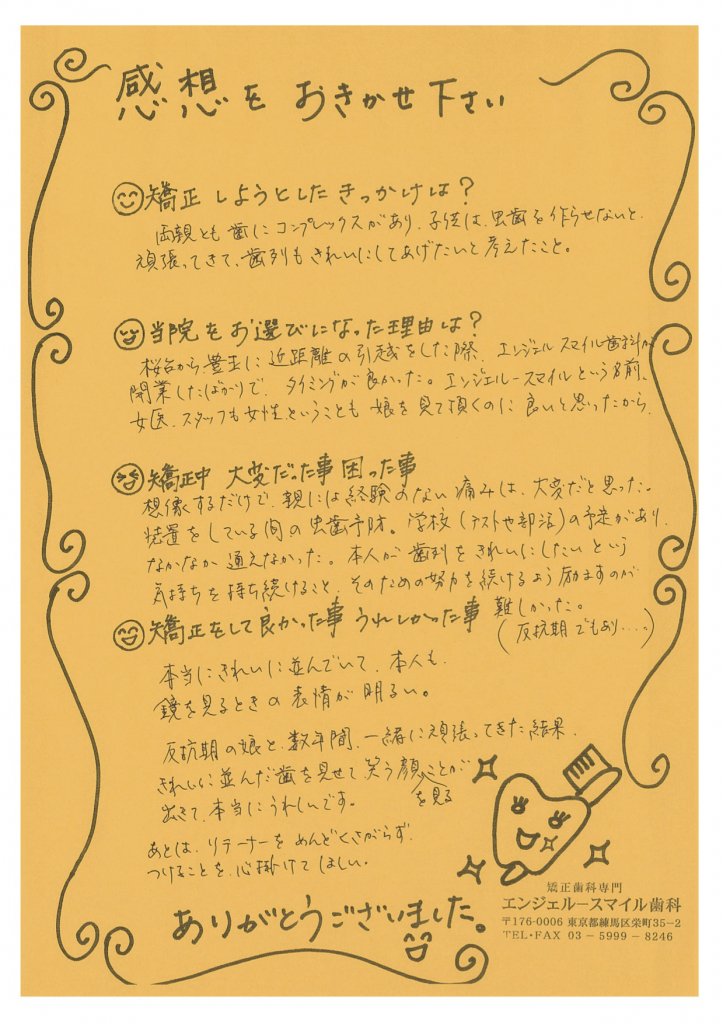 感想を おきかせ下さい
矯正 しようとした きっかけは?
両親とも 歯に コンプレックスがあり、子供は、虫歯を作らせないと、
頑張ってきて、歯列も きれいにしてあげたいと 考えたこと。
当院を お選びになった理由は?
桜台から 豊玉に 近距離の引越をした際、エンジェルスマイル歯科が
開業したばかりで、タイミングが良かった。エンジェルースマイルという名前、
女医、スタッフも女性ということも 娘を見て頂くのに 良いと思ったから、
矯正中 大変だった事 困った事
想像するだけで、親には経験のない 痛みは、大変だと思った。
装置をしている間の虫歯予防。学校(テストや部活)の予定があり、
なかなか 通えなかった。本人が 歯列を きれいにしたい という
気持ちを 持ち続けること、そのための努力を続けるよう 励ますのが
難しかった。
(反抗期でもあり....。)
矯正をして良かった事 うれしかった事
本当にきれいに並んでいて、本人も、
鏡を見るときの 表情が 明るい。
反抗期の娘と、数年間、一緒に頑張ってきた結果、
きれいに並んだ歯を見せて 笑う顔を見ることが
出来て、本当にうれしいです。
あとは、リテーナーを めんどくさがらず、
つけることを、心掛けて ほしい。
ありがとうございました。
矯正歯科専門
エンジェルースマイル歯科
〒176-0006 東京都練馬区栄町35-2
TEL・FAX 03-5999-8246